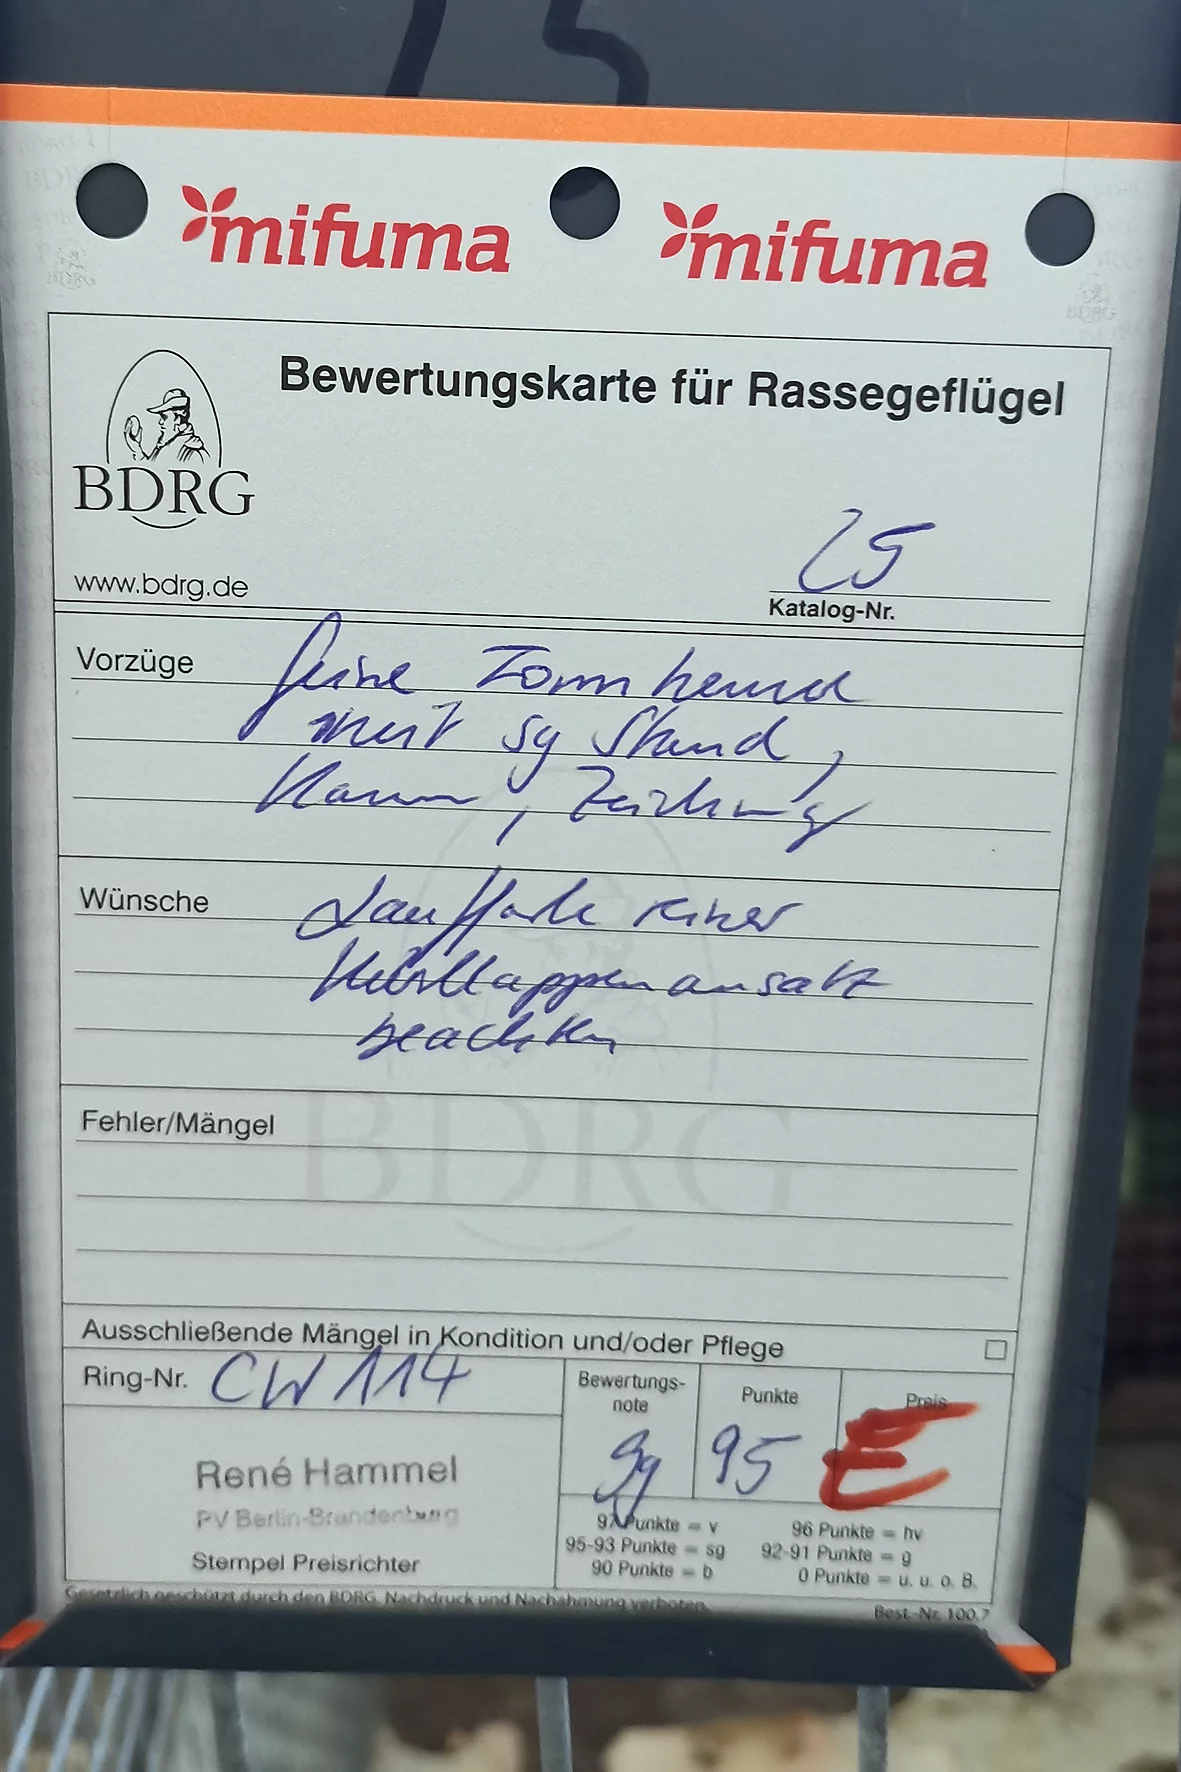 25
mifuma mifuma
Bewertungskarte für Rassegeflügel
BDRG
www.bdrg.de
25
Katalog-Nr.
Vorzüge feine Form
mit sg Stand,
Kamm, Zeichnung
Wünsche Lauffarbe reiner
Kehllappenansatz
beachten
Fehler/Mängel
BDRG
Ausschließende Mängel in Kondition und/oder Pflege
Ring-Nr. CW 114
Bewertungs-
note
sg
Punkte
95
Preis
E
René Hammel
PV Berlin-Brandenburg
Stempel Preisrichter
97 Punkte = v 96 Punkte = hv
95-93 Punkte = sg 92-91 Punkte = g
90 Punkte = b 0 Punkte = u. u. o. B.
Gesetzlich geschützt durch den BDRG. Nachdruck und Nachahmung verboten.
Best.-Nr. 100.7